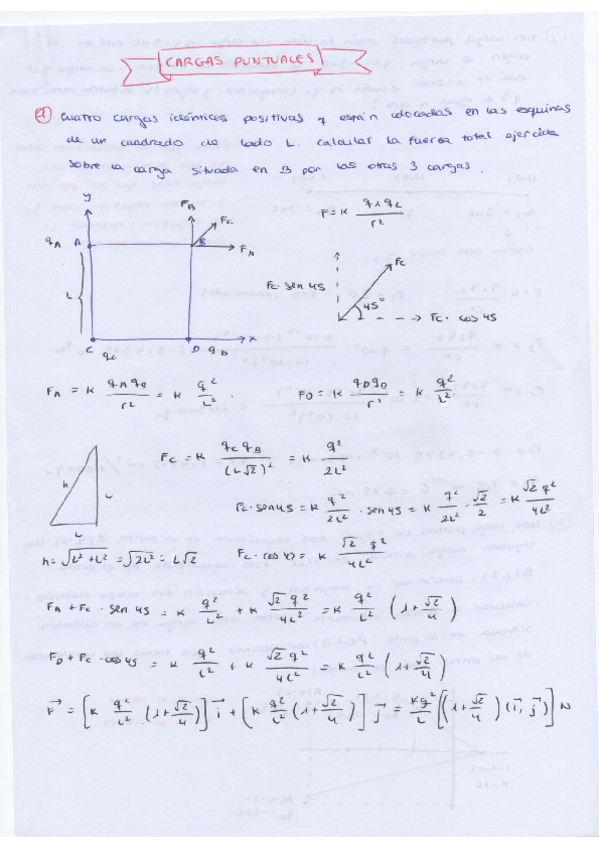 CARGAS PUNTUALES
1) Cuatro cargas idénticas positivas y están colocadas en las esquinas
de un cuadrado de lado L. calcular la fuerza total ejercida
sobre la carga situada en B por las otras 3 cargas.
y
F_B
F_C
q_A A B F_A
L
C q_C D q_D x
F = K q_1 q_2 / r²
F_C
F_C · sen 45
45°
F_C · cos 45
F_A = K q_A q_B / r² = K q² / L² .
F_D = K q_D q_D / r² = K q² / L² .
h
L
L
h = √(L² + L²) = √(2L²) = L√2
F_C = K q_C q_B / (L√2)² = K q² / 2L²
F_C · sen 45 = K q² / 2L² · sen 45 = K q² / 2L² · √2 / 2 = K √2 q² / 4L²
F_C · cos 45 = K √2 q² / 4L²
F_A + F_C · sen 45 = K q² / L² + K √2 q² / 4L² = K q² / L² (1 + √2 / 4)
F_D + F_C · cos 45 = K q² / L² + K √2 q² / 4L² = K q² / L² (1 + √2 / 4)
F⃗ = [K q² / L² (1 + √2 / 4)] i⃗ + [K q² / L² (1 + √2 / 4)] j⃗ = Kq² / L [(1 + √2 / 4) (i⃗, j⃗)] N